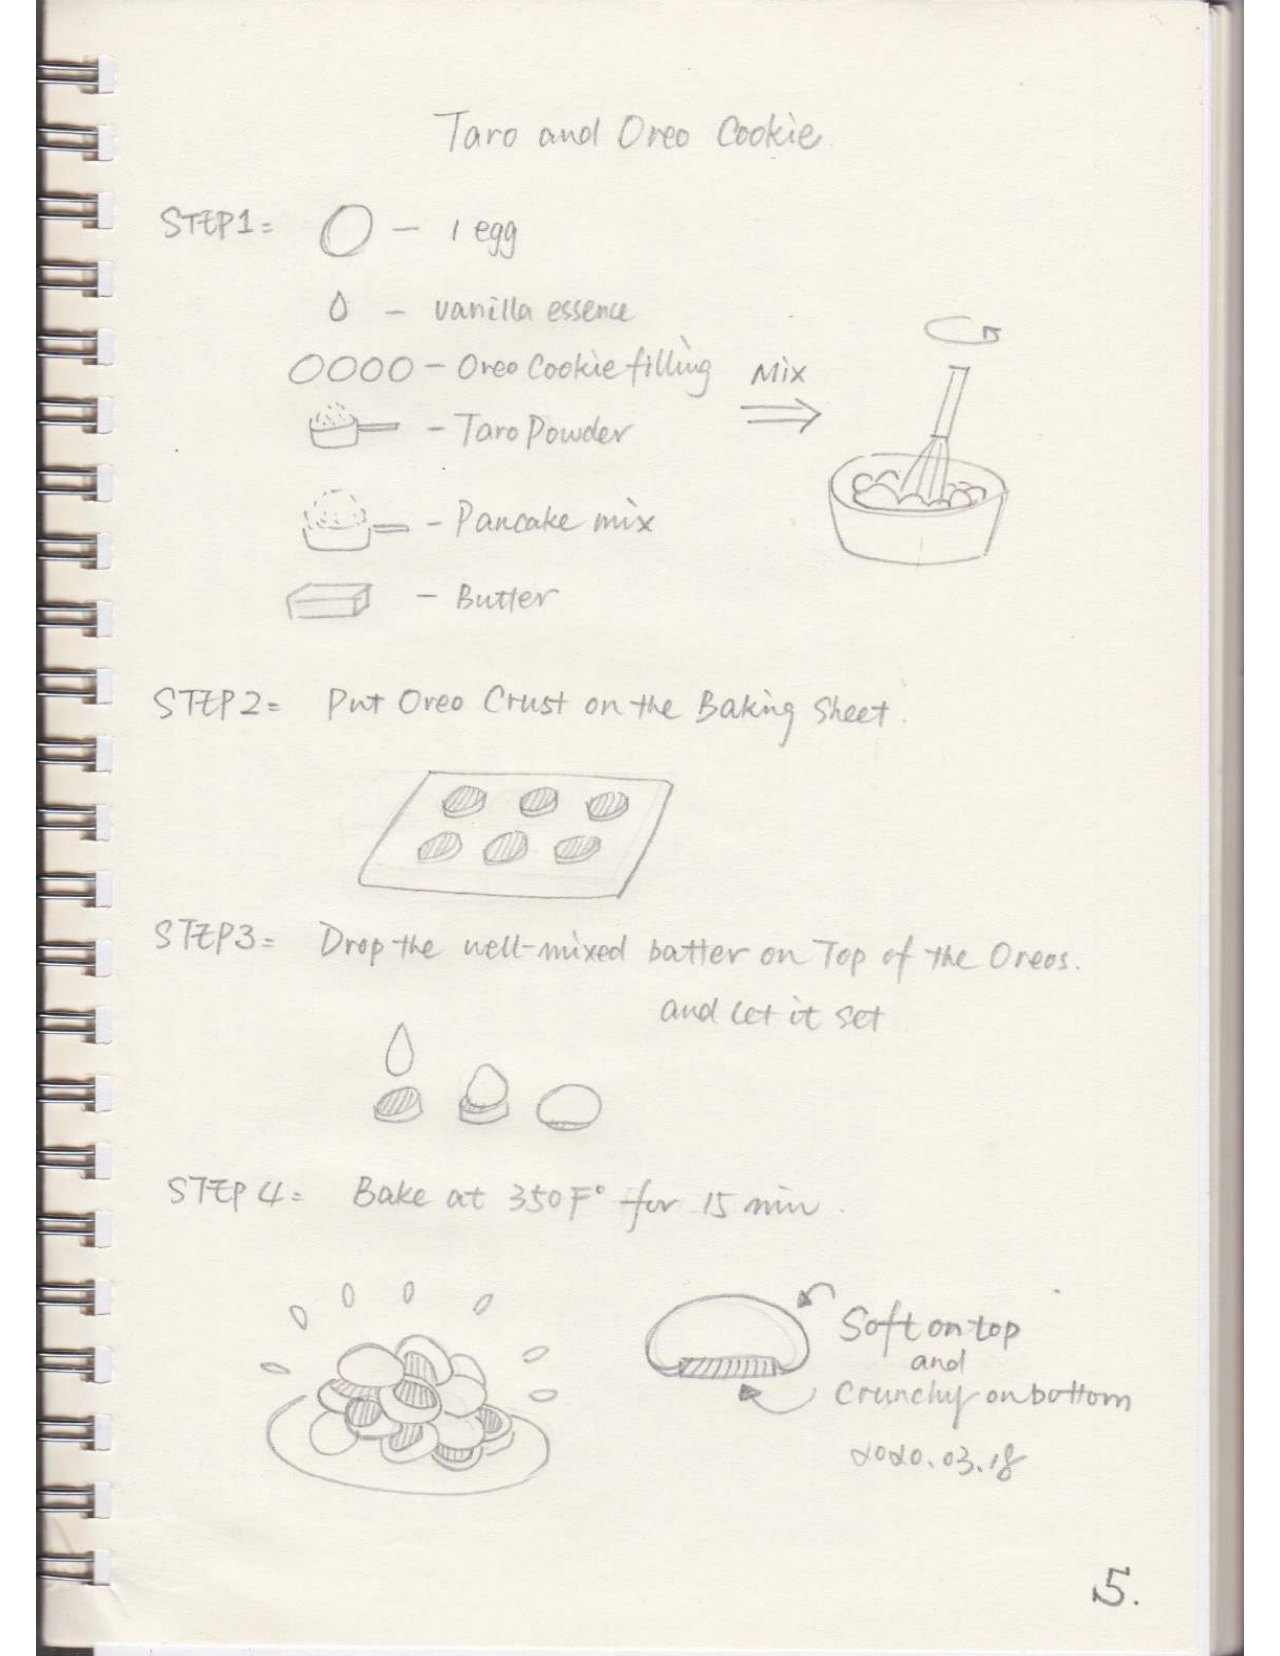 Taro and Oreo Cookie.
STEP1= - 1 egg
- vanilla essence
- Oreo Cookie filling
Mix
- Taro Powder
- Pancake mix
- Butter
STEP2= Put Oreo Crust on the Baking Sheet.
STEP3= Drop the well-mixed batter on Top of the Oreos.
and let it set
STEP 4= Bake at 350F° for 15 min.
Soft on top
and
Crunchy on bottom
2020.03.18
5.